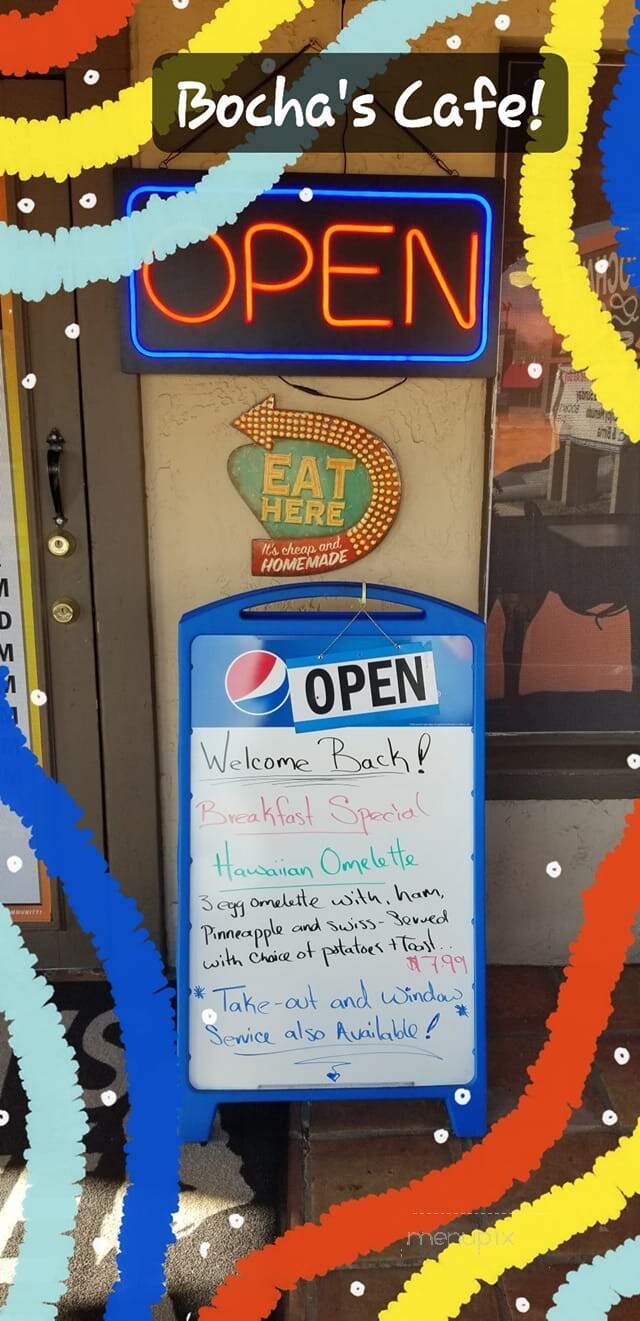 Bocha's Cafe!
OPEN
EAT
HERE
It's cheap and
HOMEMADE
OPEN
Welcome Back!
Breakfast Special
Hawaiian Omelette
3 egg omelette with, ham,
Pinneapple and swiss- Served
with Choice of potatoes + Toast..
$7.99
* Take-out and window *
Service also Available!
menupix